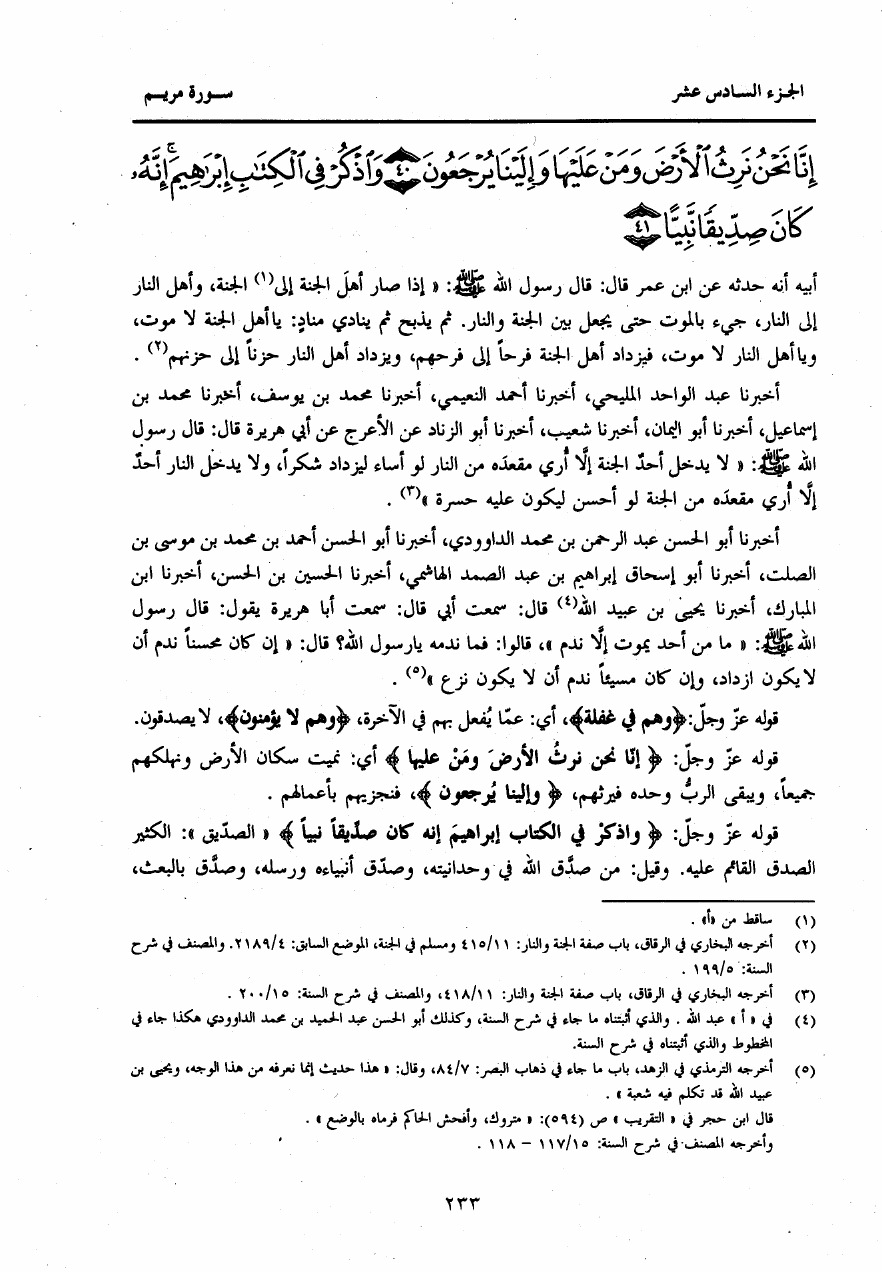 الجزء السادس عشر
سورة مريم
إِنَّا نَحْنُ نَرِثُ ٱلْأَرْضَ وَمَنْ عَلَيْهَا وَإِلَيْنَا يُرْجَعُونَ ٤٠ وَٱذْكُرْ فِى ٱلْكِتَٰبِ إِبْرَٰهِيمَ ۚ إِنَّهُۥ
كَانَ صِدِّيقًا نَّبِيًّا ٤١
أبيه أنه حدثه عن ابن عمر قال: قال رسول الله ﷺ: « إذا صار أهلَ الجنة إلى(١) الجنة، وأهل النار
إلى النار، جيء بالموت حتى يجعل بين الجنة والنار. ثم يذبح ثم ينادي منادٍ: يا أهل الجنة لا موت،
ويا أهل النار لا موت، فيزداد أهل الجنة فرحاً إلى فرحهم، ويزداد أهل النار حزناً إلى حزنهم(٢) .
أخبرنا عبد الواحد المليحي، أخبرنا أحمد النعيمي، أخبرنا محمد بن يوسف، أخبرنا محمد بن
إسماعيل، أخبرنا أبو اليمان، أخبرنا شعيب، أخبرنا أبو الزناد عن الأعرج عن أبي هريرة قال: قال رسول
الله ﷺ: « لا يدخل أحدٌ الجنة إلَّا أُري مقعدَه من النار لو أساء ليزداد شكراً، ولا يدخل النار أحدٌ
إلَّا أُري مقعدَه من الجنة لو أحسن ليكون عليه حسرة »(٣) .
أخبرنا أبو الحسن عبد الرحمن بن محمد الداوودي، أخبرنا أبو الحسن أحمد بن محمد بن موسى بن
الصلت، أخبرنا أبو إسحاق إبراهيم بن عبد الصمد الهاشمي، أخبرنا الحسين بن الحسن، أخبرنا ابن
المبارك، أخبرنا يحيىٰ بن عبيد الله(٤) قال: سمعت أبي قال: سمعت أبا هريرة يقول: قال رسول
الله ﷺ: « ما من أحد يموت إلَّا ندم »، قالوا: فما ندمه يارسول الله؟ قال: « إن كان محسناً ندم أن
لا يكون ازداد، وإن كان مسيئاً ندم أن لا يكون نزع »(٥) .
قوله عزّ وجلّ: ﴿وهم في غفلة﴾، أي: عمّا يُفعل بهم في الآخرة، ﴿وهم لا يؤمنون﴾، لا يصدقون.
قوله عزّ وجلّ: ﴿ إنّا نحن نرثُ الأرضَ ومَنْ عليها ﴾ أي: نميت سكان الأرض ونهلكهم
جميعاً، ويبقى الربُّ وحده فيرثهم، ﴿ وإلينا يُرجعون ﴾، فنجزيهم بأعمالهم .
قوله عزّ وجلّ: ﴿ واذكرْ في الكتاب إبراهيمَ إنه كان صدِّيقاً نبياً ﴾ « الصدّيق »: الكثير
الصدق القائم عليه. وقيل: من صدَّق الله في وحدانيته، وصدّق أنبياءه ورسله، وصدَّق بالبعث،
(١) ساقط من «أ» .
(٢) أخرجه البخاري في الرقاق، باب صفة الجنة والنار: ٤١٥/١١ ومسلم في الجنة، الموضع السابق: ٢١٨٩/٤. والمصنف في شرح
السنة: ١٩٩/٥ .
(٣) أخرجه البخاري في الرقاق، باب صفة الجنة والنار: ٤١٨/١١، والمصنف في شرح السنة: ٢٠٠/١٥ .
(٤) في « أ » عبد الله . والذي أثبتناه ما جاء في شرح السنة، وكذلك أبو الحسن عبد الحميد بن محمد الداوودي هكذا جاء في
المخطوط والذي أثبتناه في شرح السنة.
(٥) أخرجه الترمذي في الزهد، باب ما جاء في ذهاب البصر: ٨٤/٧، وقال: « هذا حديث إنما نعرفه من هذا الوجه، ويحيى بن
عبيد الله قد تكلم فيه شعبة » .
قال ابن حجر في « التقريب » ص (٥٩٤): « متروك، وأفحش الحاكم فرماه بالوضع » .
وأخرجه المصنف في شرح السنة: ١١٧/١٥ – ١١٨ .
٢٣٣